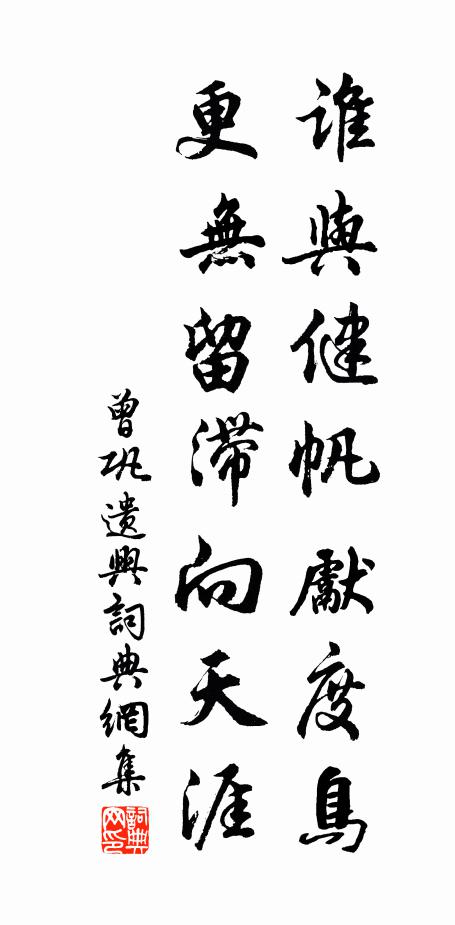 誰與健帆獻度鳥
更無留滯向天涯
曾巩遺興詞典網集
詞典网印